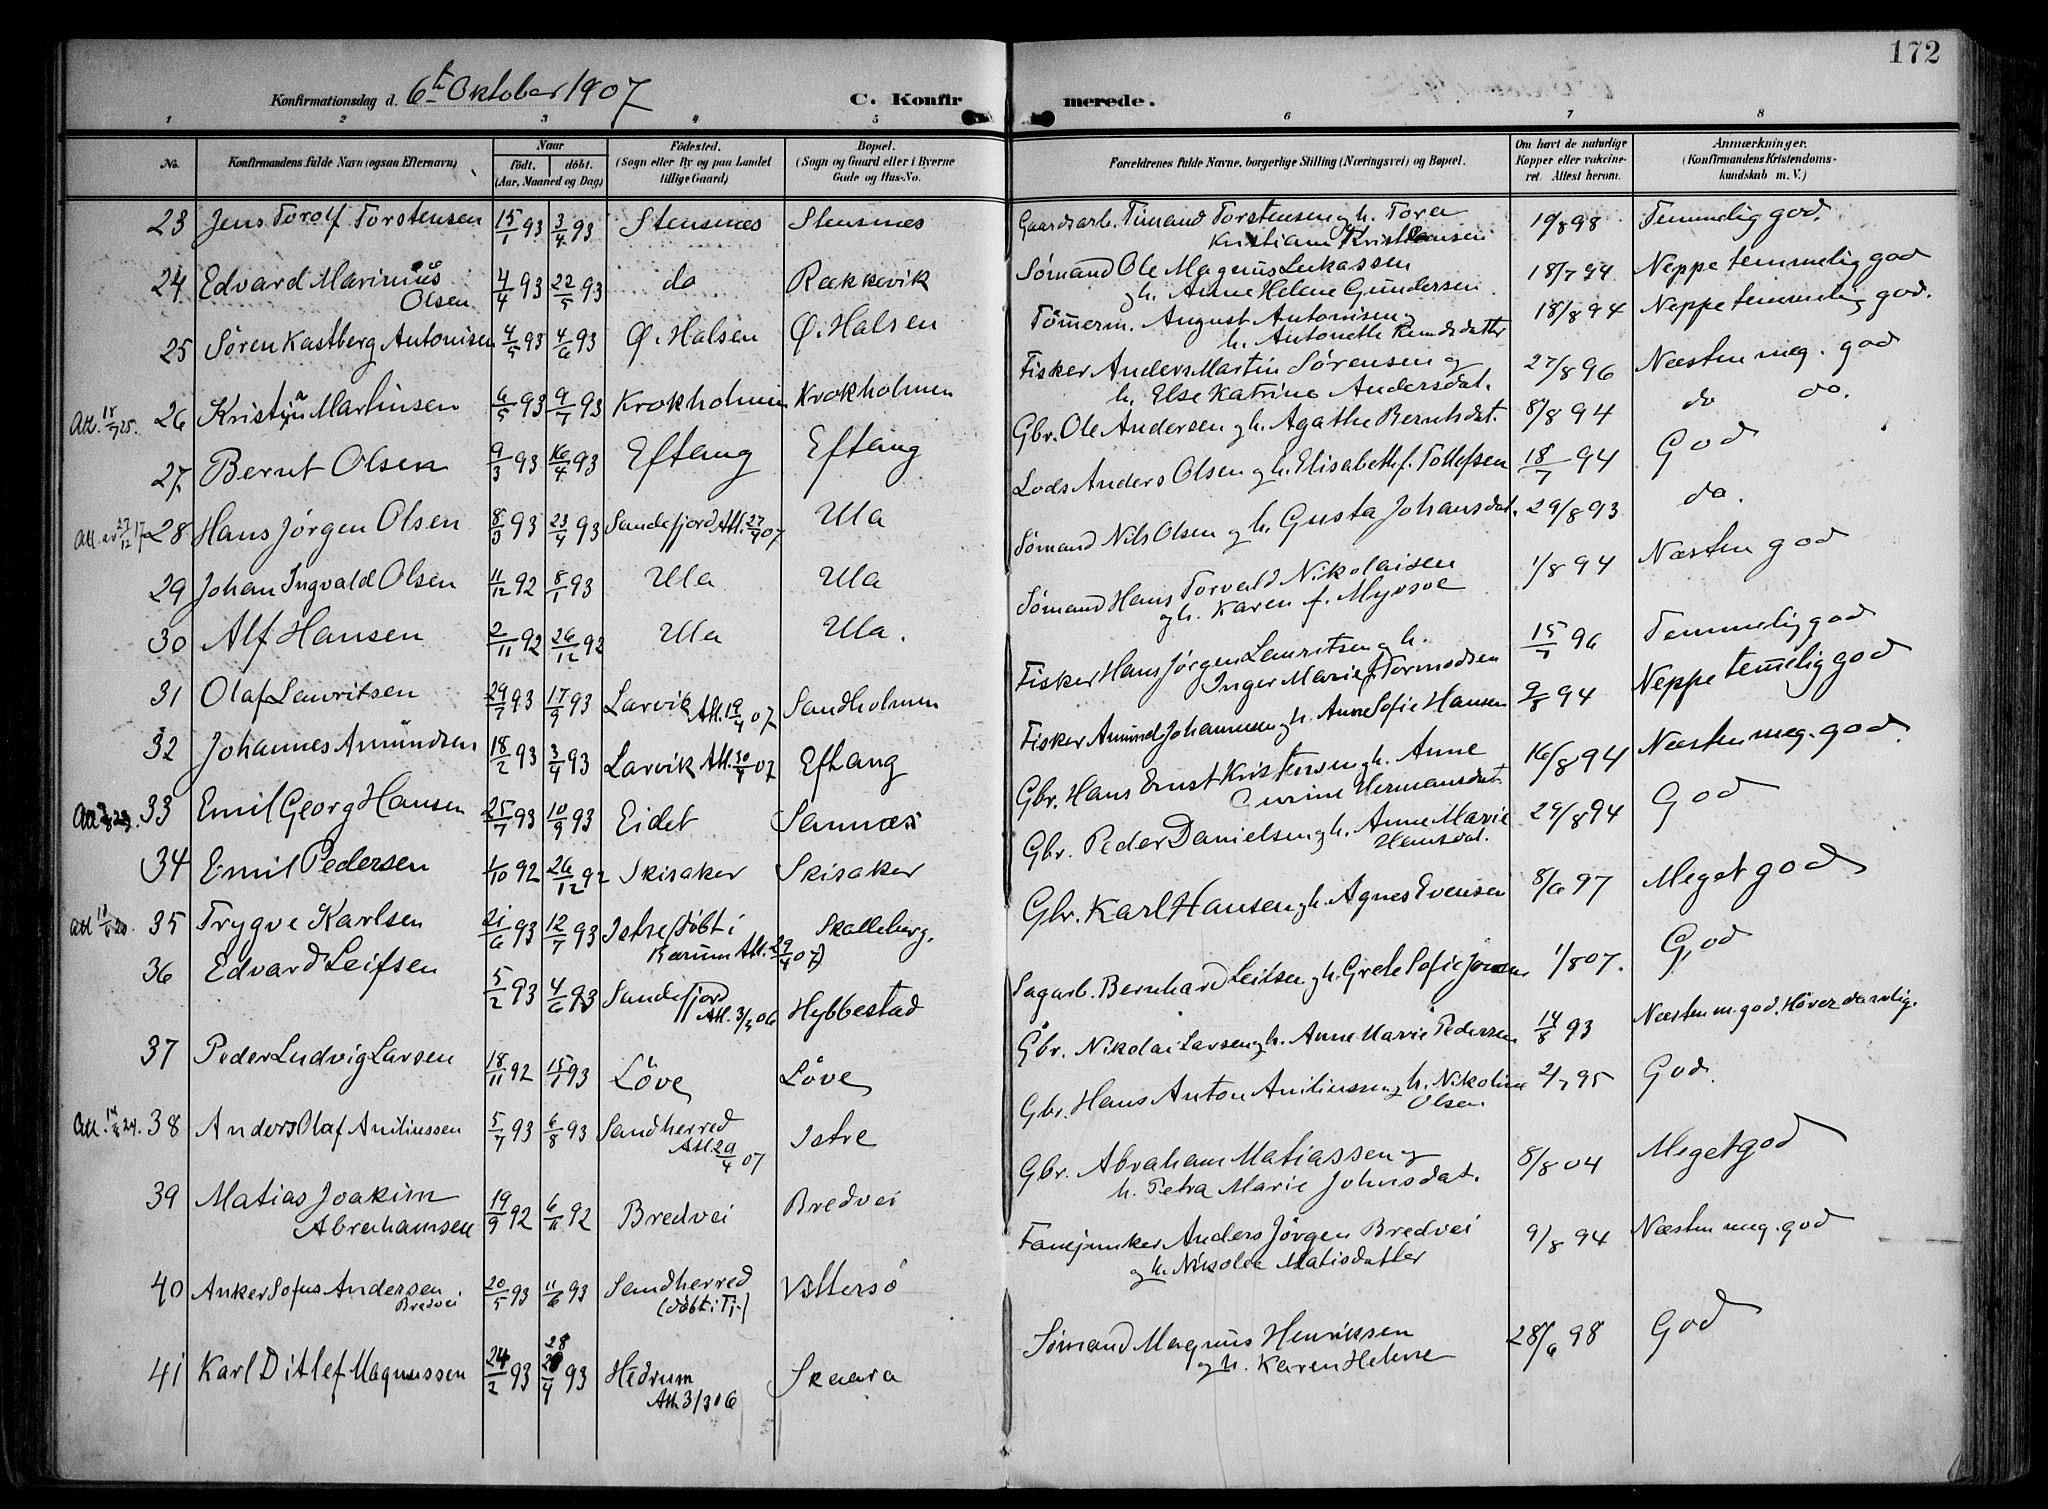 172
Konfirmationsdag d. 6te Oktober 1907
C. Konfirmerede.
1 2 3 4 5 6 7 8
No.
Konfirmandens fulde Navn (ogsaa Efternavn)
Naar
födt. döbt.
(Aar, Maaned og Dag)
Födested.
(Sogn eller By og paa Landet
tillige Gaard)
Bopæl.
(Sogn og Gaard eller i Byerne
Gade og Hus-No.
Forældrenes fulde Navne, borgerlige Stilling (Næringsvei) og Bopæl.
Om havt de naturlige
Kopper eller vakcine-
ret. Attest herom.
Anmærkninger.
(Konfirmandens Kristendoms-
kundskab m. V.)
23 Jens Torolf Torstensen 15/1 93 3/4 93 Stensnæs Stensnæs
Gaardsarb. Timand Torstensen og h. Tora
Kristiane Kristiansen 19/8 98 Temmelig god.
24 Edvard Marinius
Olsen 4/4 93 22/5 93 do Rækkevik
Sømand Ole Magnus Lukassen
og h. Anne Helene Gundersen 18/7 94 Neppe temmelig god
25 Søren Kastberg Antonisen 4/5 93 4/6 93 Ø. Halsen Ø. Halsen
Tømerm. August Antonisen og
h. Antoneth Knudsdatter 18/8 94 Neppe temmelig god.
Att. 25. 26 Kristian Martinsen 6/5 93 9/7 93 Krokholmen Krokholmen
Fisker Anders Martin Sørensen og
h. Else Katrine Andersdat. 27/8 96 Næsten meg. god
27. Bernt Olsen 9/3 93 16/4 93 Eftang Eftang
Gbr. Ole Andersen og h. Agathe Berntsdat. 8/8 94 do do.
Att. 27/12 17 28 Hans Jørgen Olsen 8/3 93 23/4 93 Sandefjord Att. 27/9 07 Ula
Lods Anders Olsen og h. Elisabeth f. Tollefsen 18/7 94 God
29 Johan Ingvald Olsen 11/12 92 8/1 93 Ula Ula
Sømand Nils Olsen og h. Gusta Johansdat. 29/8 93 do.
30 Alf Hansen 2/11 92 26/12 92 Ula Ula.
Sømand Hans Torvald Nikolaisen
og h. Karen f. Myrsoe 1/8 94 Næsten god
31 Olaf Lauritsen 29/7 93 17/9 93 Larvik Att. 19/4 07 Sandholmen
Fisker Hans Jørgen Lauritsen og h.
Inger Marie f. Tormodsen 15/7 96 Temmelig god
32 Johannes Amundsen 18/2 93 3/4 93 Larvik Att. 30/4 07 Eftang
Fisker Amund Johannesen og h. Anne Sofie Hansen 9/8 94 Neppe temelig god
Att 33 Emil Georg Hansen 25/7 93 10/9 93 Eidet Sannæs
Gbr. Hans Ernst Kristensen og h. Anne
Hermansdat. 16/8 94 Næsten meg. god.
34 Emil Pedersen 1/10 92 26/12 92 Skisaker Skisaker
Gbr. Peder Danielsen og h. Anne Marie
Hansdat. 29/8 94 God
Att 35 Trygve Karlsen 21/6 93 12/7 93 Istre /döbt i
Bærum Att. 29/4 07) Skalleberg.
Gbr. Karl Hansen og h. Agnes Evensen 8/6 97 Meget god
36 Edvard Leifsen 5/2 93 4/6 93 Sandefjord
Att. 3/3 06 Hybbestad
Sagarb. Bernhard Leifsen og h. Grete Sofie 1/8 07. God
37 Peder Ludvig Larsen 18/11 92 15/1 93 Löve Löve
Gbr. Nikolai Larsen og h. Anne Marie Pedersen 14/8 93 Næsten m. god. Hører daarlig.
Att. 38 Anders Olaf Aniliussen 5/7 93 6/8 93 Sandherred
Att. 29/4 07 Istre
Gbr. Hans Anton Aniliussen og h. Nikoline
Olsen 2/7 95 God.
39 Matias Joakim
Abrahamsen 19/9 92 6/11 92 Bredvei Bredvei
Gbr. Abraham Matiassen og
h. Petra Marie Johnsdat. 8/8 04 Meget god
40 Anker Sofus Andersen
Bredvei 20/5 93 11/6 93 Sandherred
(döbt i Tj-) Vittersö
Fanejunker Anders Jörgen Bredvei
og h. Nikolea Matisdatter 9/8 94 Næsten meg. god
41 Karl Ditlef Magnussen 24/2 93 28/4 93 Hedrum
Att. 3/3 06 Skaara
Sømand Magnus Henrikssen
og h. Karen Helene 28/6 98 God